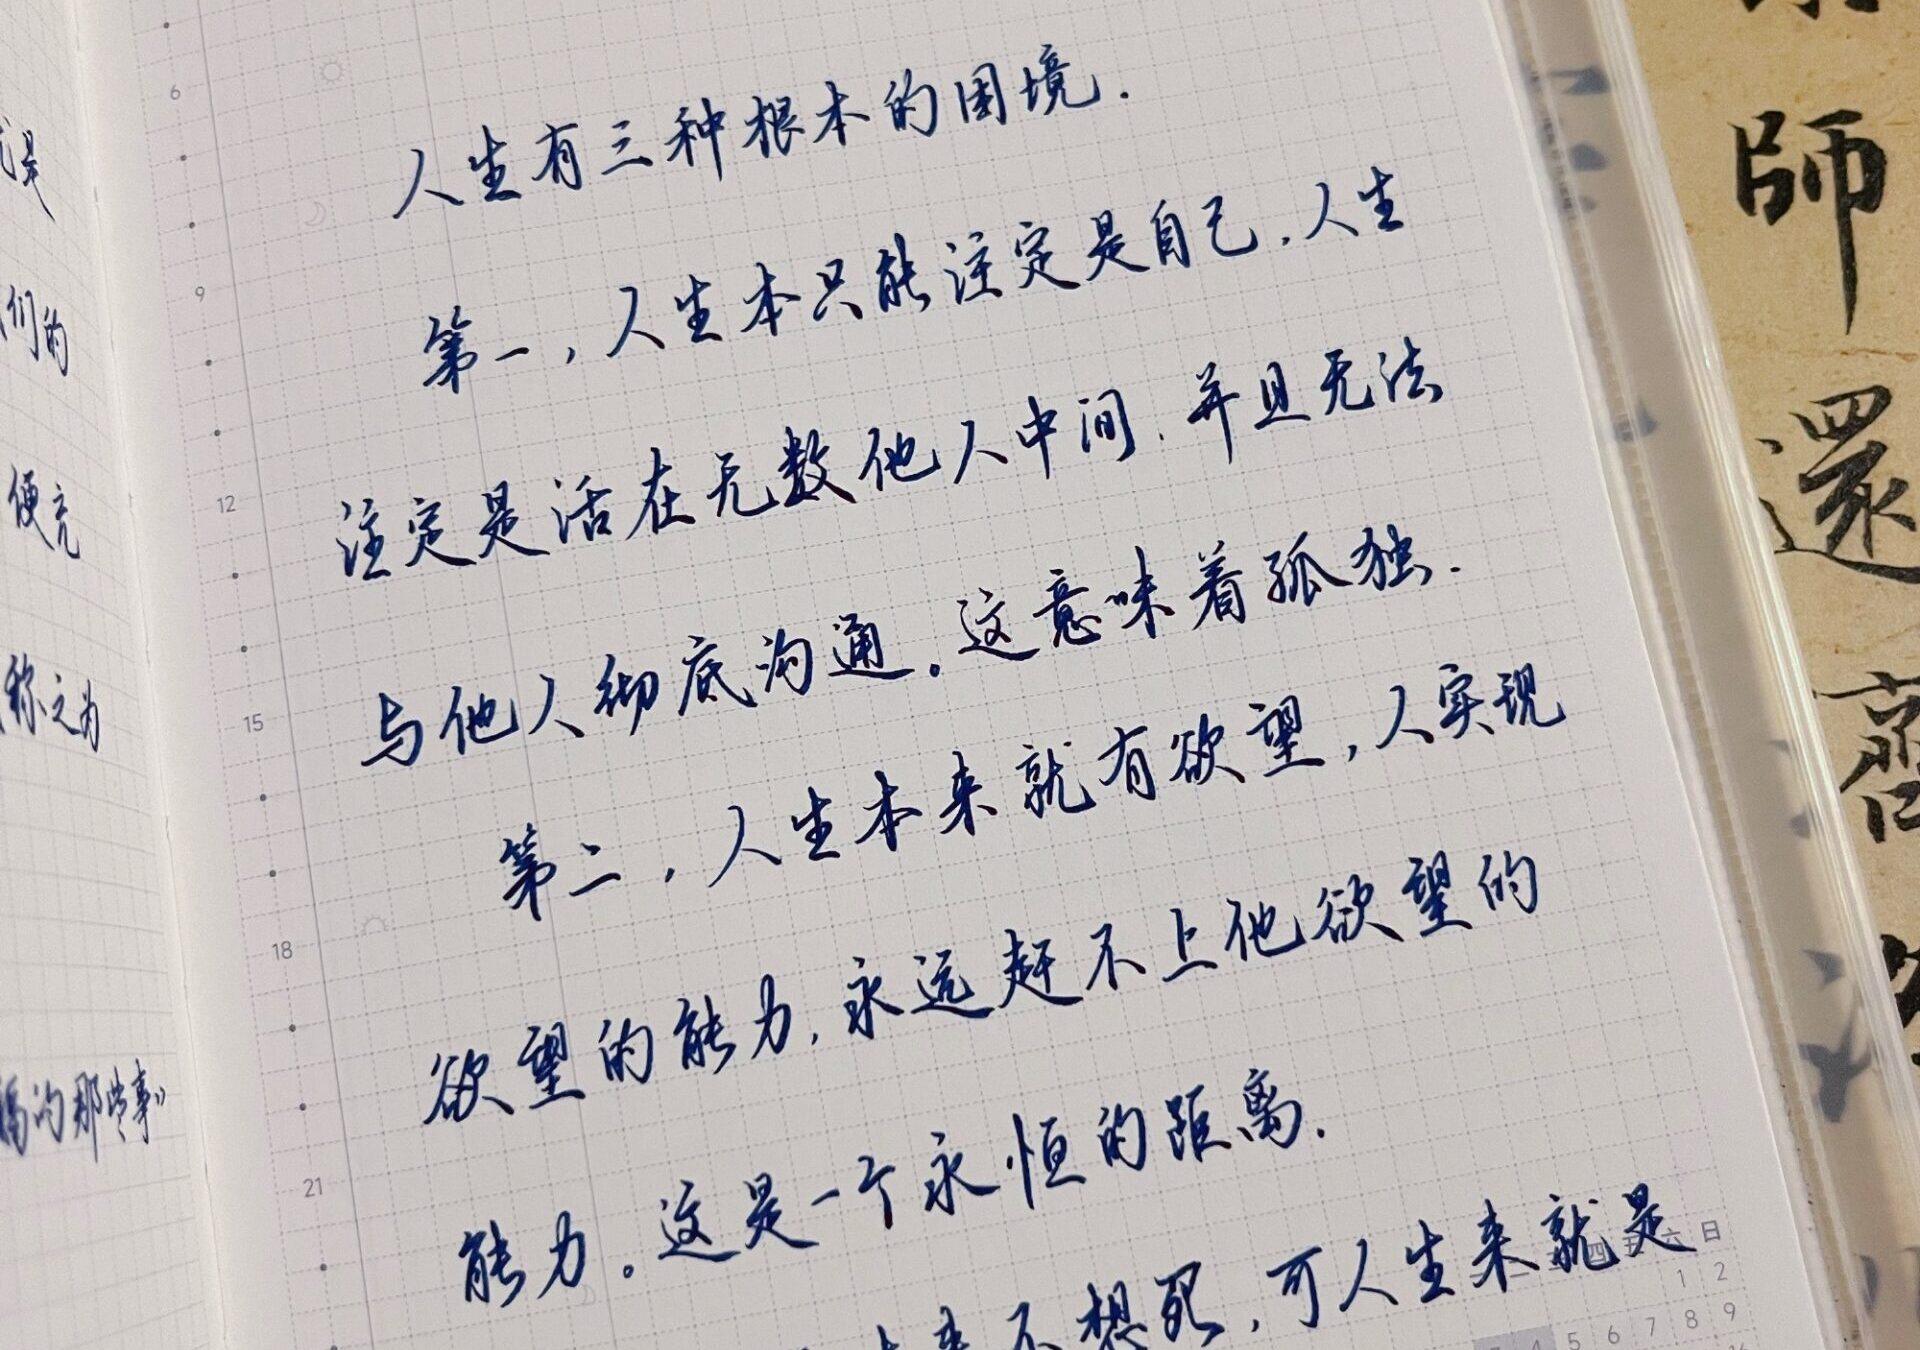 是
们的
便充
称之为
的那些事》
6
9
12
15
18
21
人生有三种根本的困境.
第一,人生本只能注定是自己.人生
注定是活在无数他人中间.并且无法
与他人彻底沟通。这意味着孤独.
第二,人生本来就有欲望,人实现
欲望的能力,永远赶不上他欲望的
能力。这是一个永恒的距离.
来不想死,可人生来就是
四五六日
1 2
5 6 7 8 9
師
還
齋